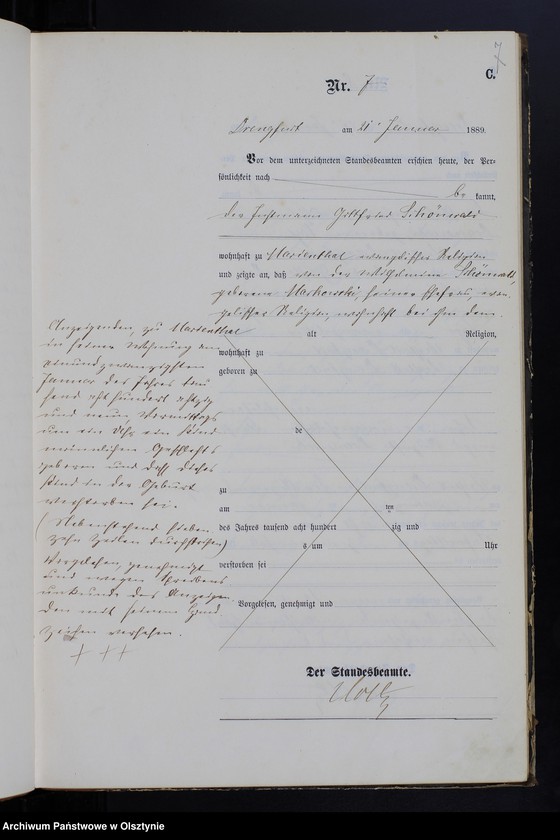 7
C.
Nr. 7
Drengfurt am 21. Januar 1889.
Vor dem unterzeichneten Standesbeamten erschien heute, der Per-
sönlichkeit nach
be kannt,
der Instmann Gottfried Schönwald
wohnhaft zu Marienthal evangelischer Religion
und zeigte an, daß von der Wilhelmine Schönwald,
geborene Markowski, seiner Ehefrau, evan-
gelischer Religion, wohnhaft bei ihm dem
Anzeigenden, zu Marienthal
in seiner Wohnung am
einundzwanzigsten
Januar des Jahres tau
send achthundert achtzig
und neun Vormittags
um ein Uhr ein Kind
männlichen Geschlechts
geboren und daß dieses
Kind in der Geburt
verstorben sei.
(Nebenstehend sieben
zehn Zeilen durchstrichen)
Vorgelesen, genehmigt
und wegen Schreibens
unkunde des Anzeigen
den mit seinem Hand
zeichen versehen.
+ + +
alt Religion,
wohnhaft zu
geboren zu
de
zu
am ten
des Jahres tausend acht hundert zig und
s um Uhr
verstorben sei
Vorgelesen, genehmigt und
Der Standesbeamte.
Archiwum Państwowe w Olsztynie